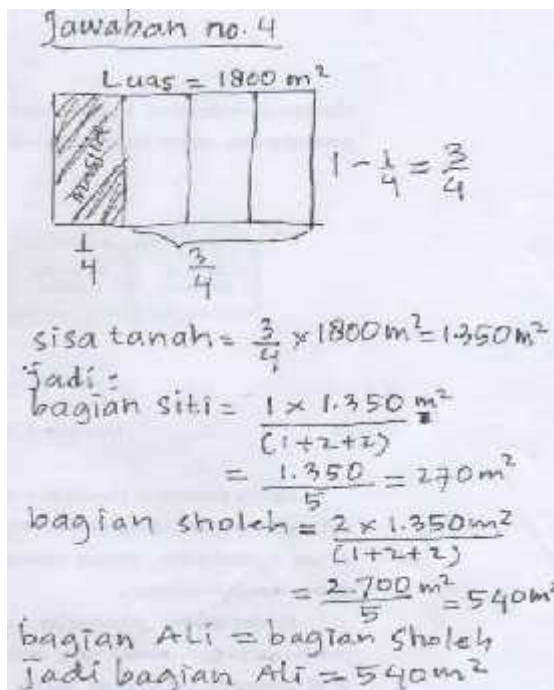 Jawaban no. 4
Luas = 1800 m²
masjid
1 - 1/4 = 3/4
1/4
3/4
sisa tanah = 3/4 × 1800 m² = 1.350 m²
jadi :
bagian Siti = 1 × 1.350 m² / (1+2+2)
= 1.350 / 5 = 270 m²
bagian sholeh = 2 × 1.350 m² / (1+2+2)
= 2.700 m² / 5 = 540 m²
bagian Ali = bagian Sholeh
jadi bagian Ali = 540 m²